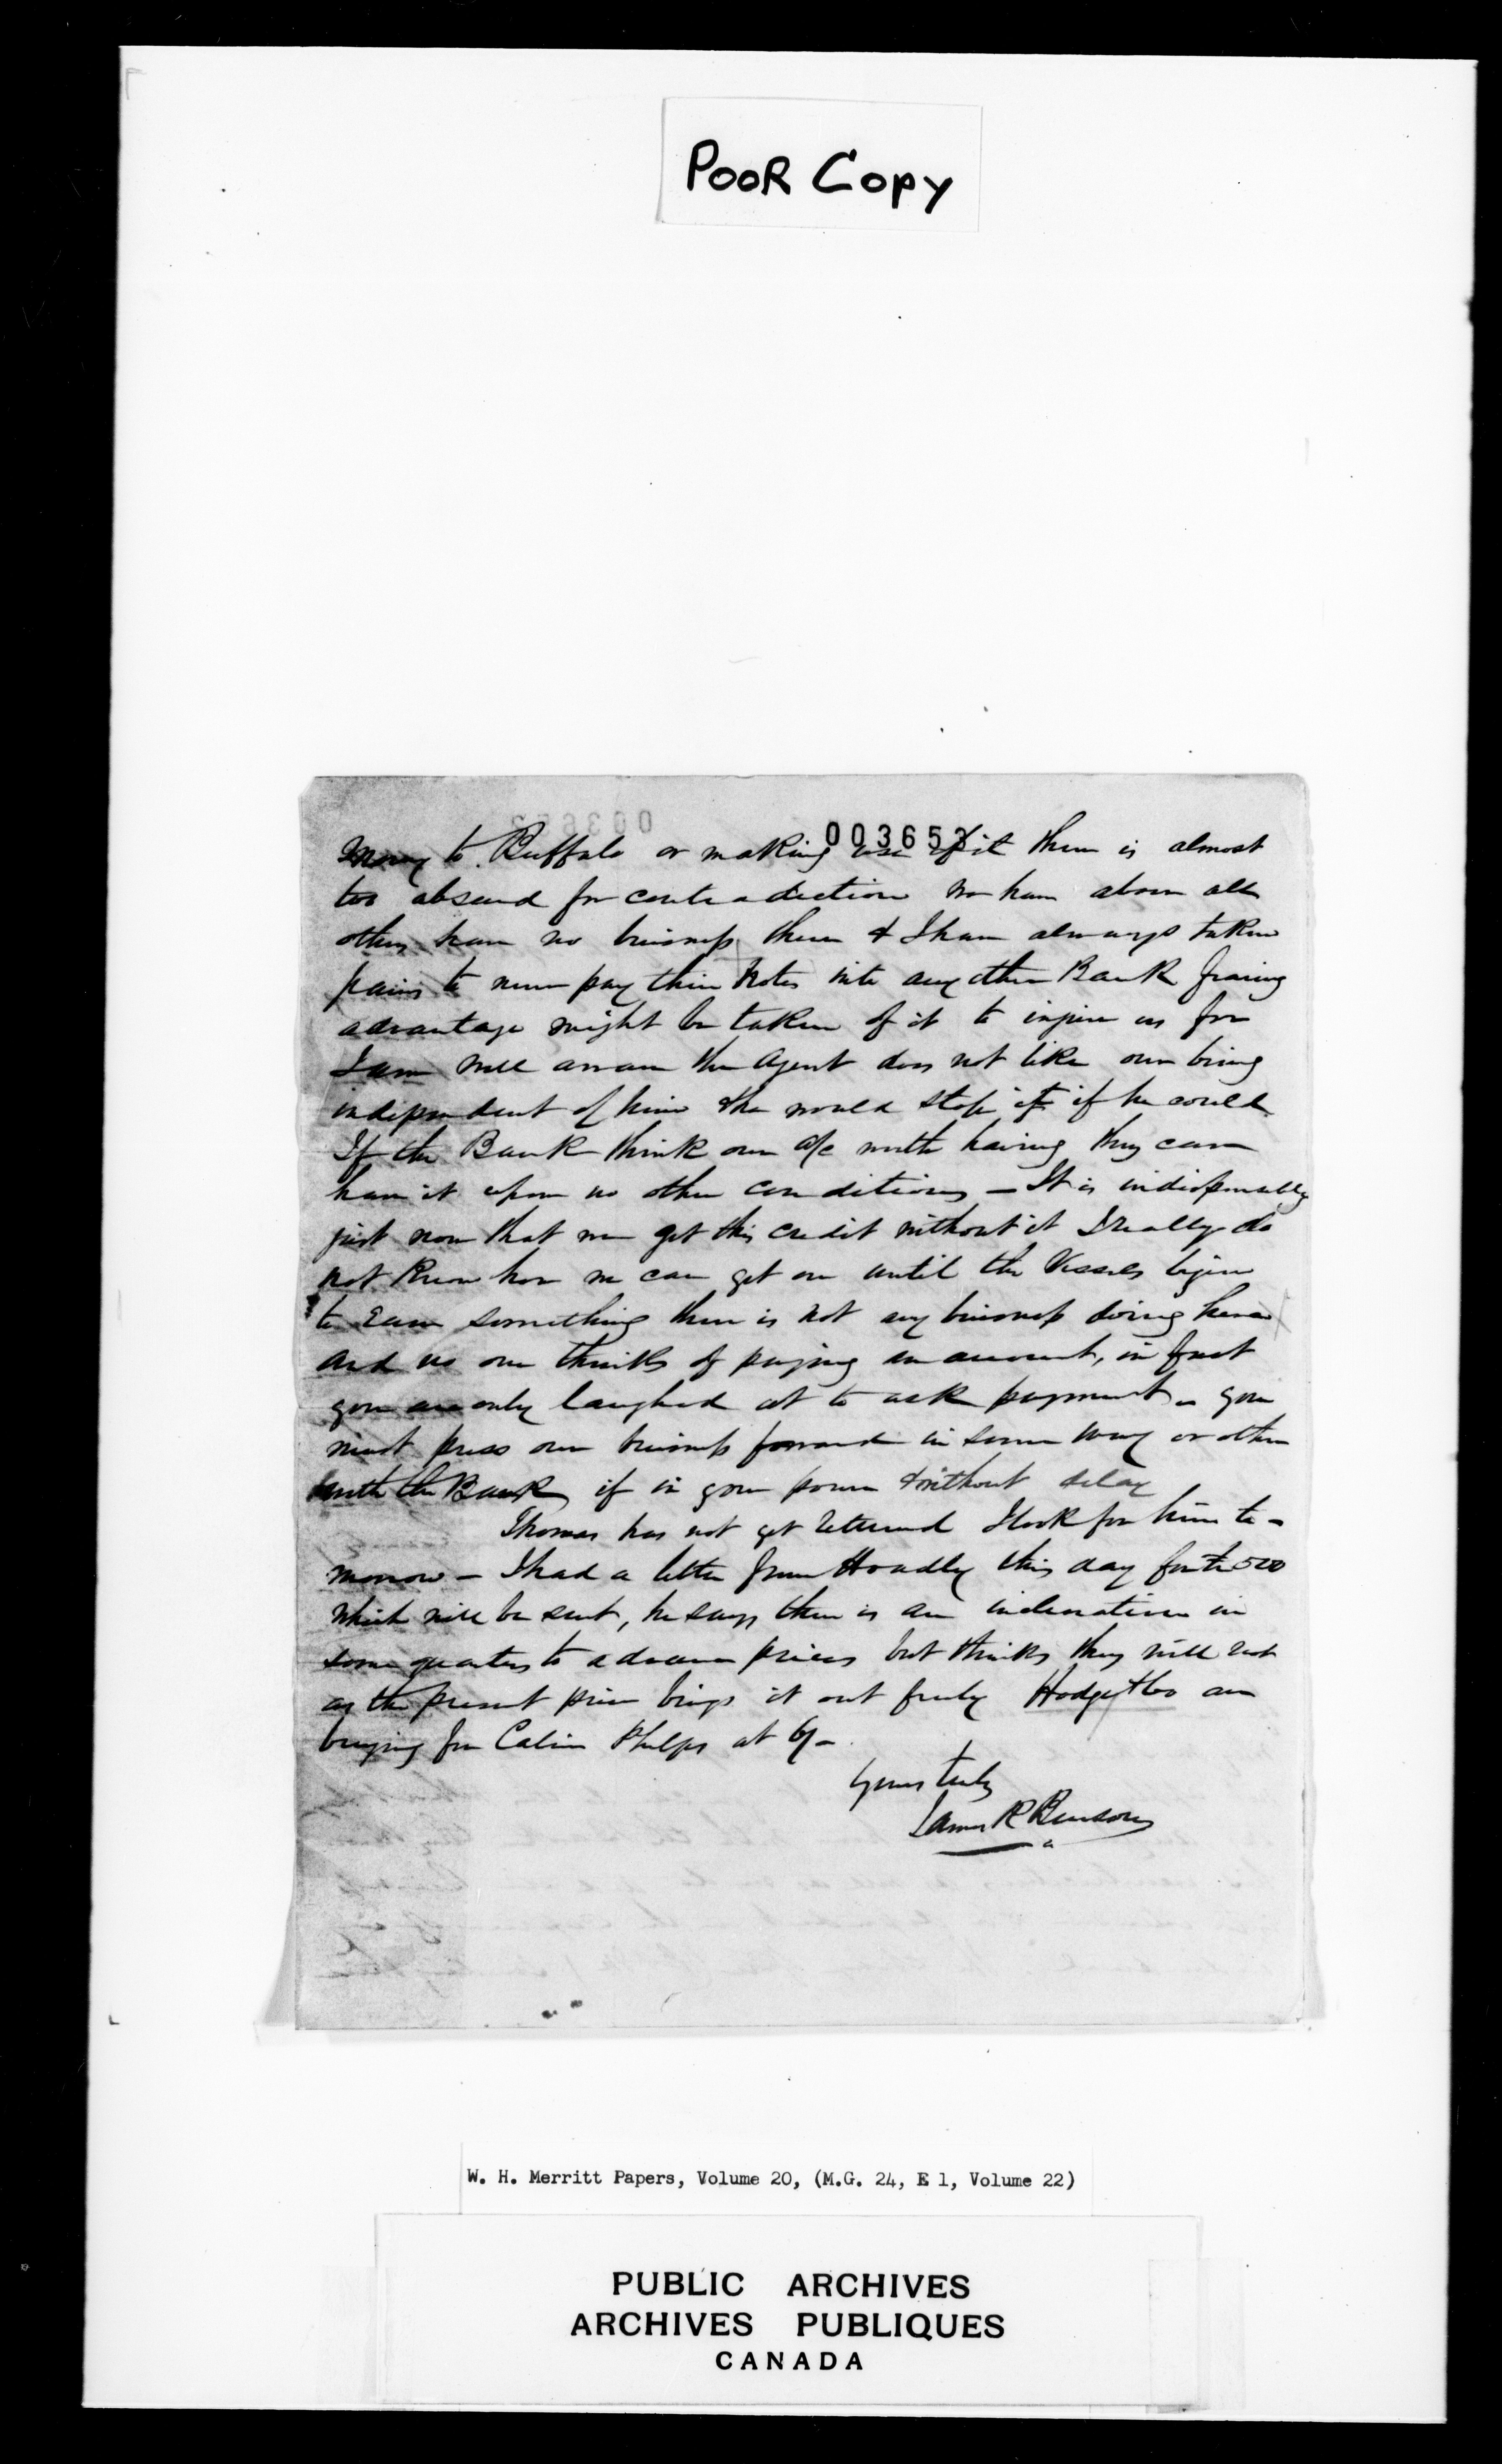 POOR COPY
003653
money to Buffalo or making use of it there is almost
too absurd for contradiction we have above all
others have no business there & I have always taken
pains to never pay their Notes into any other Bank fearing
advantage might be taken of it to injure us for
I am well aware the Agent does not like our being
independent of him & he would stop it if he could
If the Bank think our a/c worth having they can
have it upon no other conditions – It is indispensably
just now that we get this credit without it I really do
not know how we can get on until the Vessels begin
to earn something there is not any business doing here
and no one thinks of paying an account, in fact
you are only laughed at to ask payment – you
must press our business forward in some way or other
with the Bank if in your power & without delay
Thomas has not yet returned I look for him to-
morrow – I had a letter from Hoadly this day for the 500
which will be sent, he says there is an inclination in
some quarters to advance prices but thinks they will not
as the present price brings it out freely Hodge & Co are
buying for Calvin Phelps at 6/-
Yours truly
James R Benson
W. H. Merritt Papers, Volume 20, (M.G. 24, E 1, Volume 22)
PUBLIC ARCHIVES
ARCHIVES PUBLIQUES
CANADA